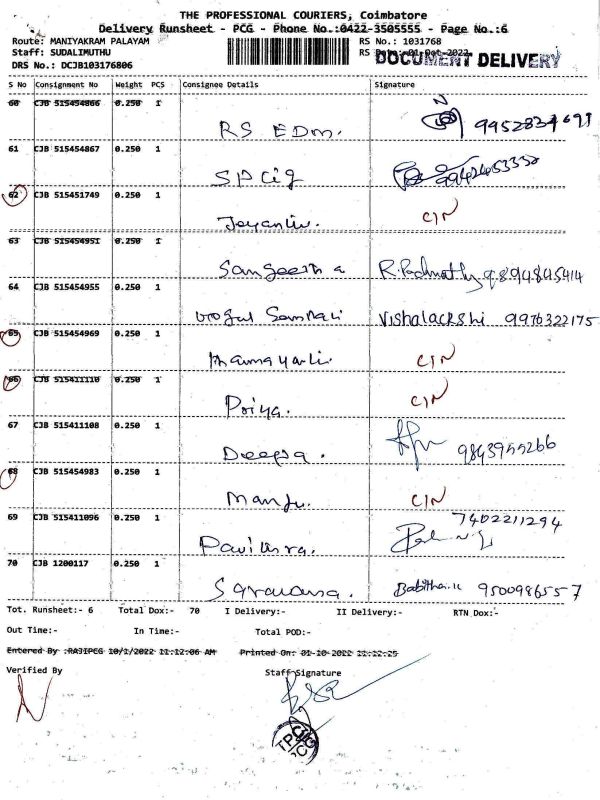 THE PROFESSIONAL COURIERS, Coimbatore
Delivery Runsheet - PCG - Phone No.:0422-3505555 - Page No.:6
Route: MANIYAKRAM PALAYAM RS No.: 1031768
Staff: SUDALIMUTHU RS Date:-01-Oct-2022
DRS No.: DCJB103176806 DOCUMENT DELIVERY
S No Consignment No Weight PCS Consignee Details Signature
60 CJB 515454866 0.250 1
RS EDm. 9952834691
61 CJB 515454867 0.250 1
SPCig
62 CJB 515451749 0.250 1
CIN
63 CJB 515454951 0.250 1
Sangeetha 9894845414
64 CJB 515454955 0.250 1
Vishalackshi 9976322175
65 CJB 515454969 0.250 1
CIN
66 CJB 515411110 0.250 1
Priya. CIN
67 CJB 515411108 0.250 1
Deepa. 9843955266
68 CJB 515454983 0.250 1
Manju. CIN
69 CJB 515411096 0.250 1
7402211294
Pavithra.
70 CJB 1200117 0.250 1
Saravana. Babitha.K 9500986557
Tot. Runsheet:- 6 Total Dox:- 70 I Delivery:- II Delivery:- RTN Dox:-
Out Time:- In Time:- Total POD:-
Entered By :RAJIPCG 10/1/2022 11:12:06 AM Printed On: 01-10-2022 11:12:25
Verified By Staff Signature